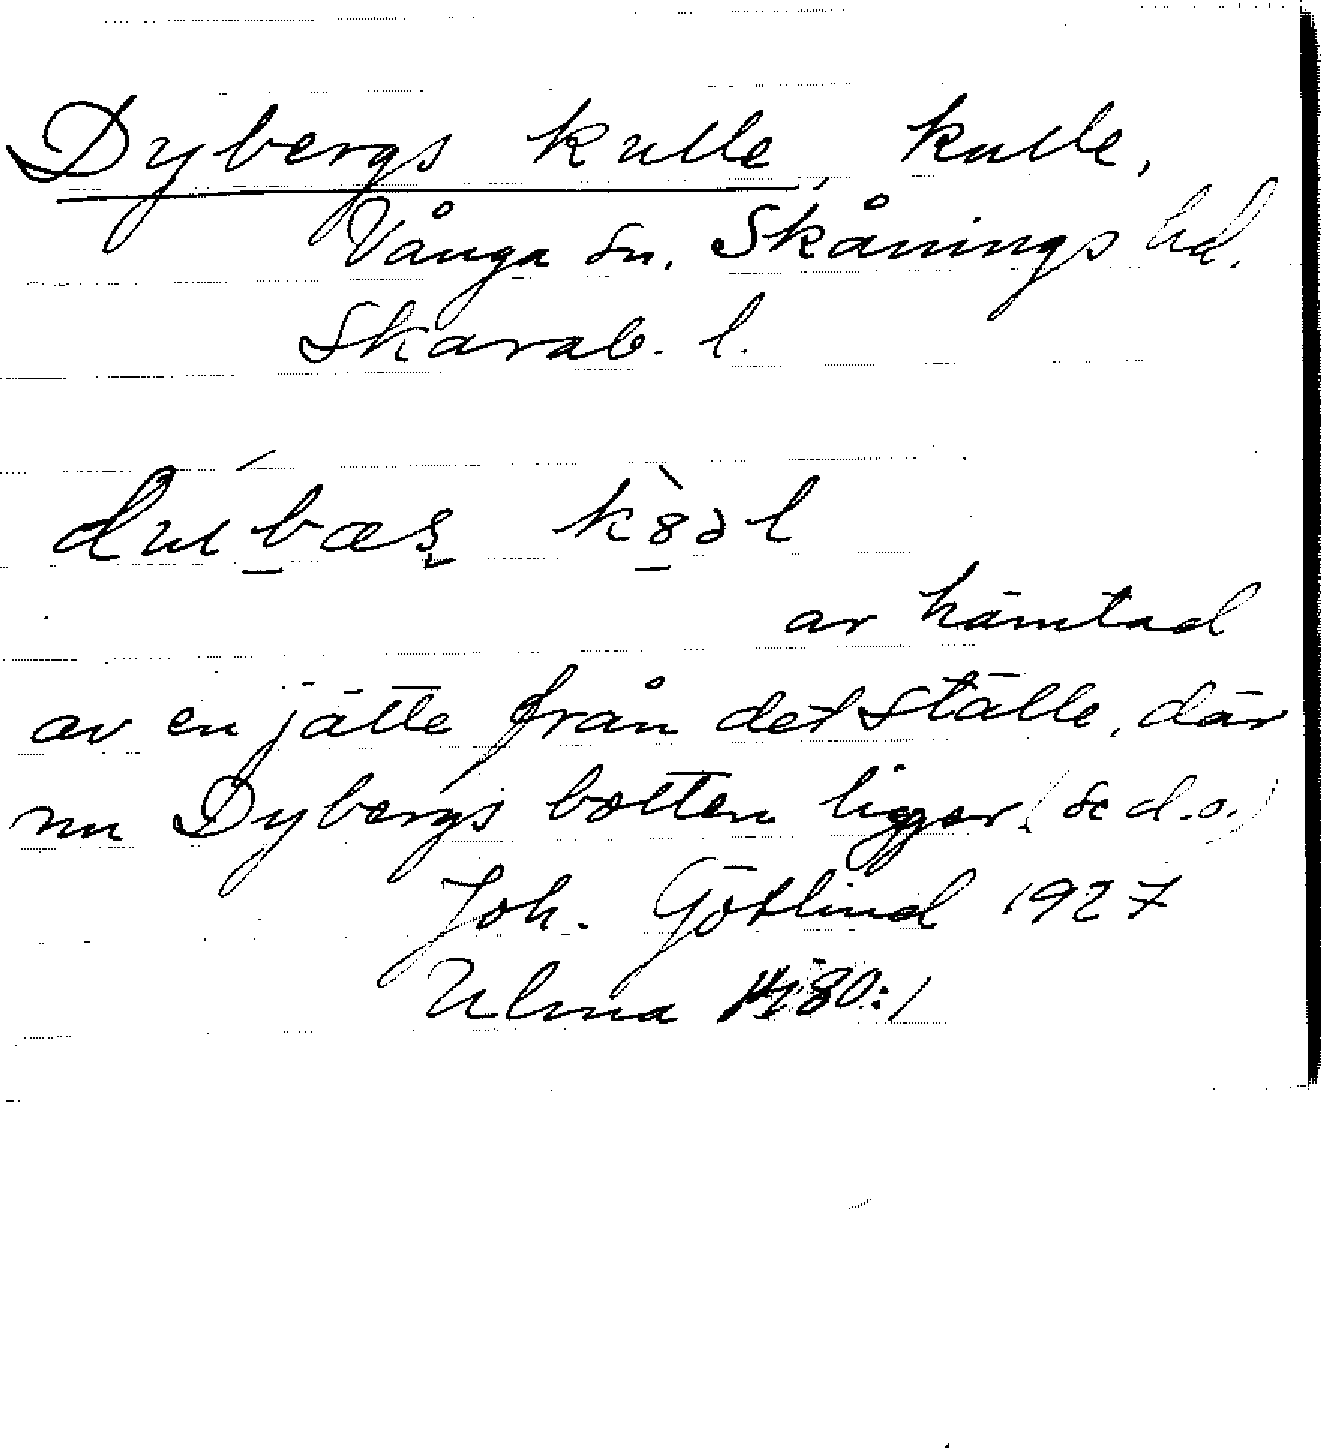 Dybergs kulle, kulle,
Vånga sn. Skånings hd.
Skarab. l.
är hämtad
av en jätte från det ställe, där
nu Dybergs botten ligger (se d.o.)
Joh. Götlind 1927
Ulma 80:1